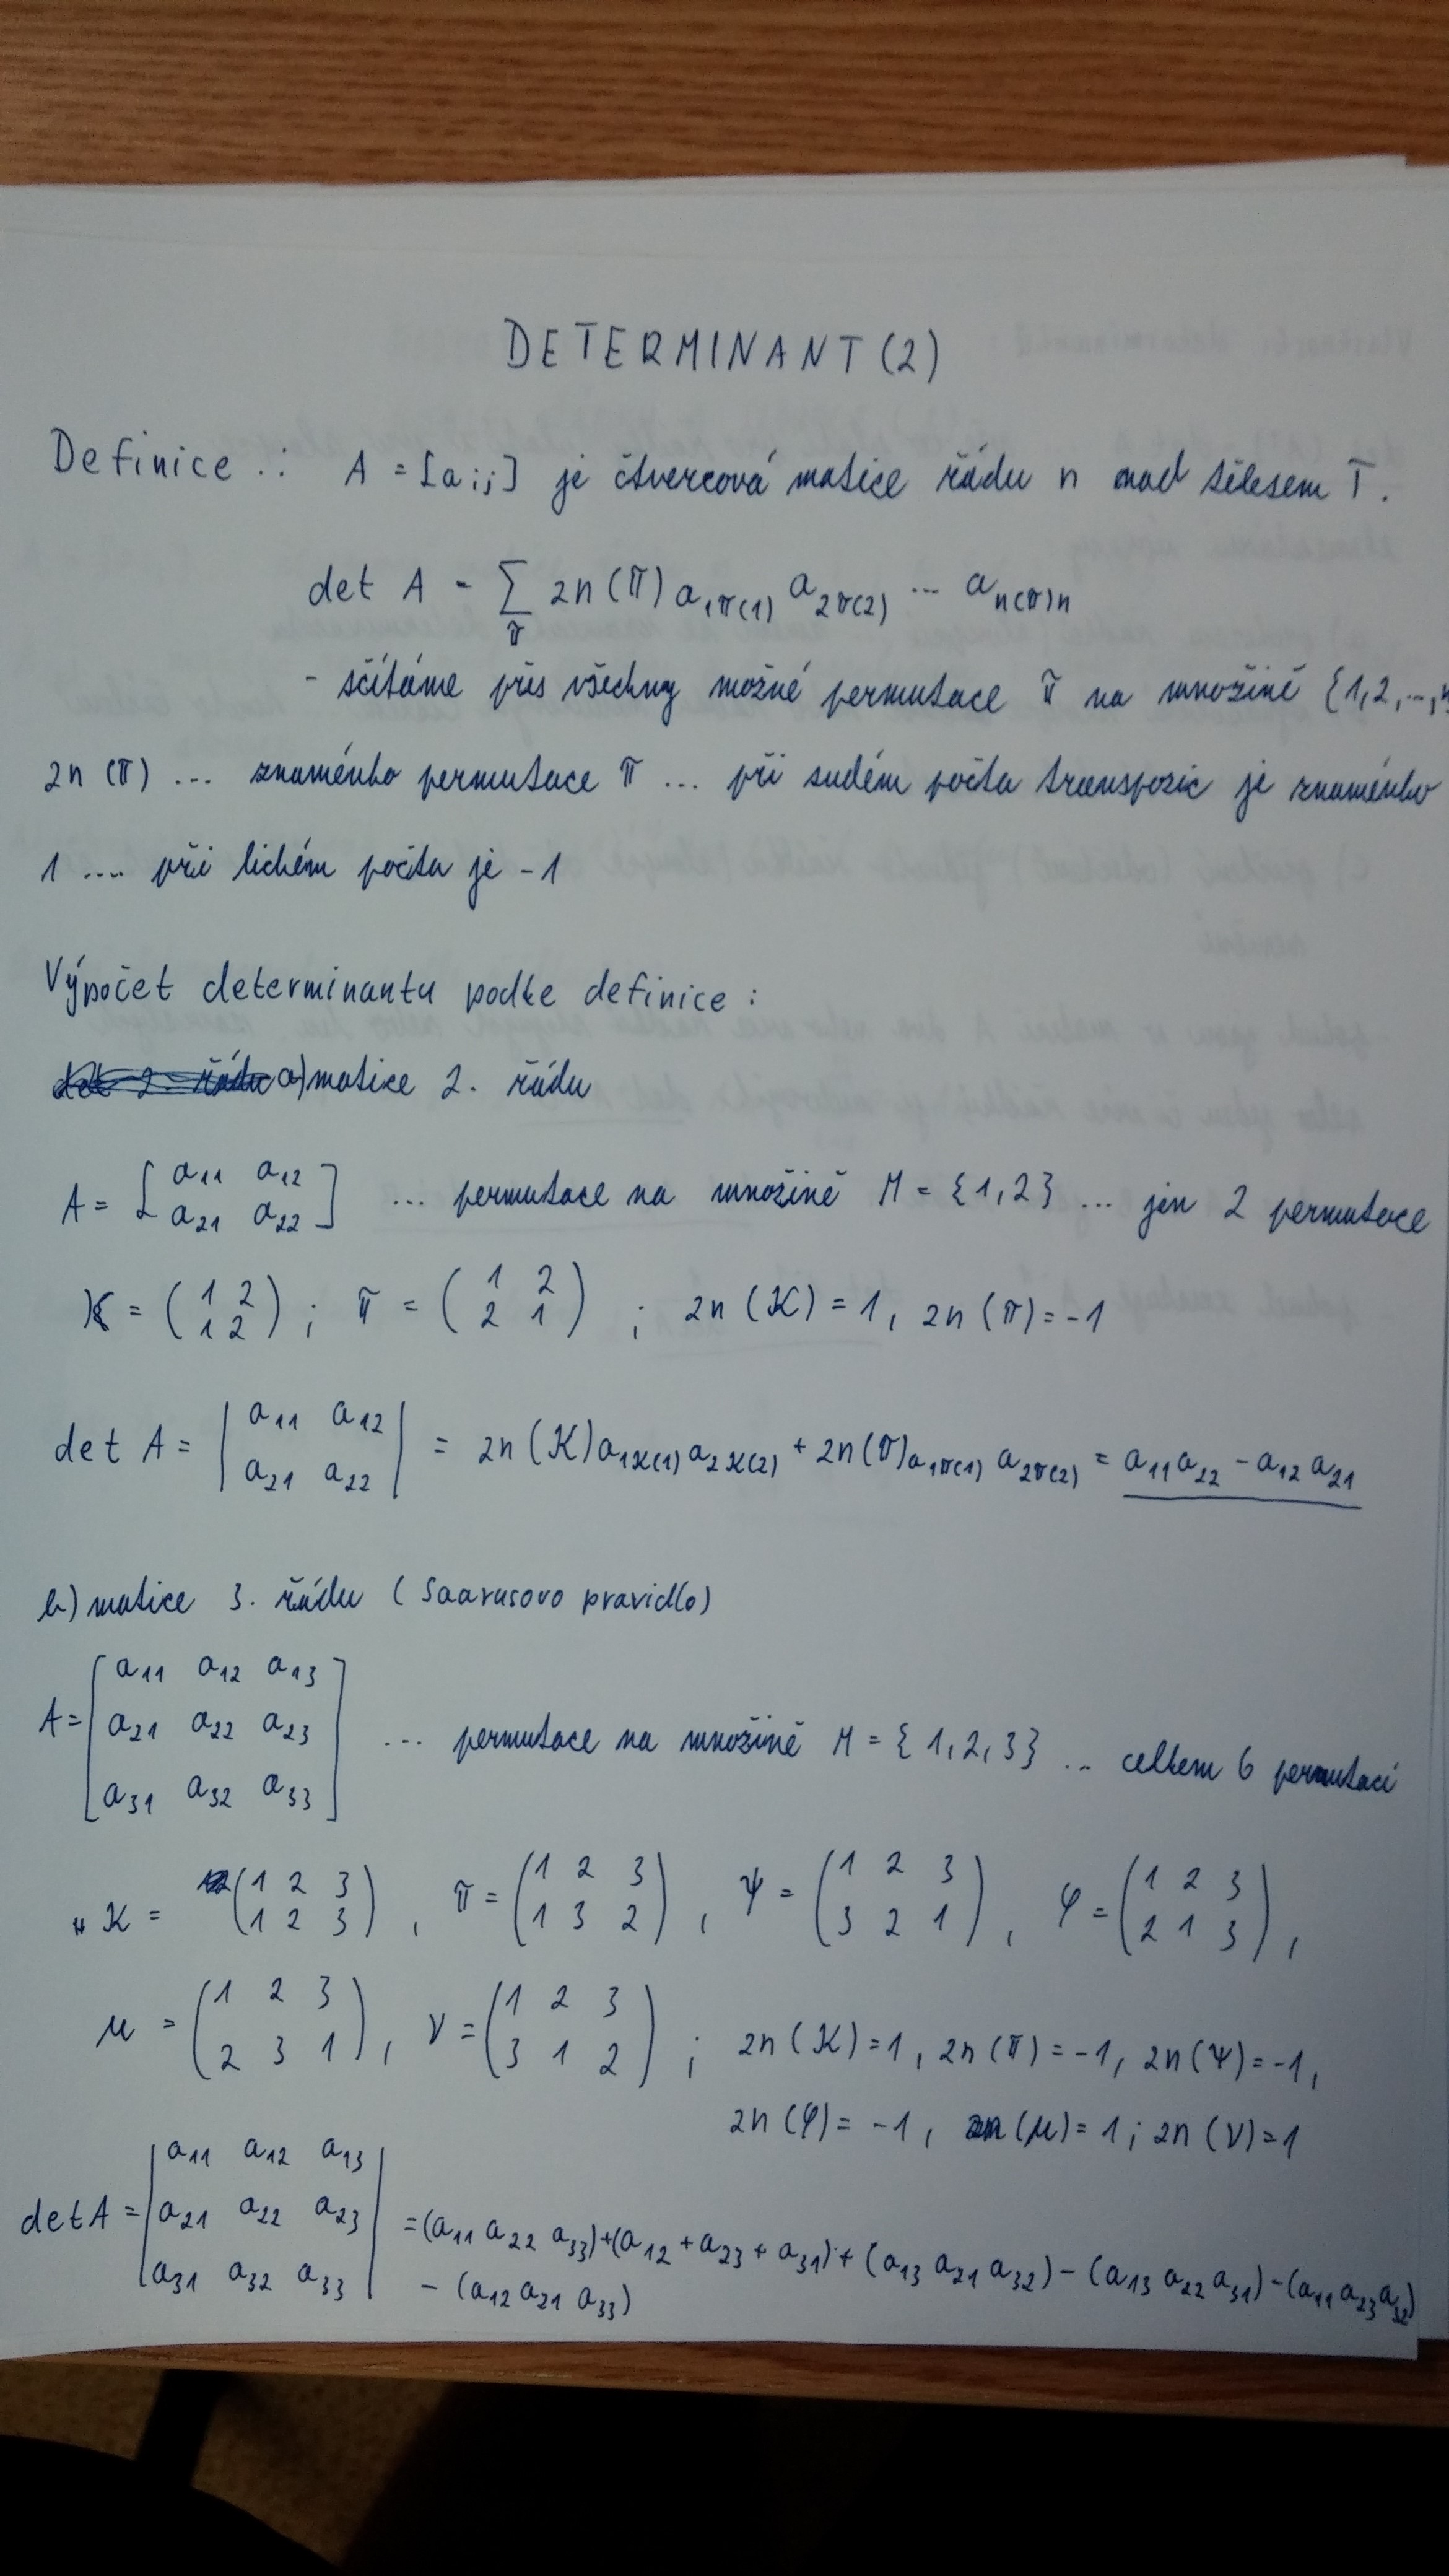 DETERMINANT (2)
Definice .: A = [aij] je čtvercová matice řádu n nad tělesem T.
det A = ∑π zn(π) a1π(1) a2π(2) ... an(π)n
- sčítáme přes všechny možné permutace π na množině {1,2,...,n
zn (π) ... znaménko permutace π ... při sudém počtu transpozic je znaménko
1 .... při lichém počtu je -1
Výpočet determinantu podle definice :
a) matice 2. řádu
A = [ a11 a12 ; a21 a22 ] ... permutace na množině M = {1,2} ... jen 2 permutace
ϰ = ( 1 2 ; 1 2 ) ; π = ( 1 2 ; 2 1 ) ; zn (ϰ) = 1, zn (π) = -1
det A = | a11 a12 ; a21 a22 | = zn (ϰ) a1ϰ(1) a2ϰ(2) + zn(π) a1π(1) a2π(2) = a11 a22 - a12 a21
b) matice 3. řádu ( Saarusovo pravidlo)
A = [ a11 a12 a13 ; a21 a22 a23 ; a31 a32 a33 ] ... permutace na množině M = {1,2,3} .. celkem 6 permutací
ϰ = ( 1 2 3 ; 1 2 3 ) , π = ( 1 2 3 ; 1 3 2 ) , ψ = ( 1 2 3 ; 3 2 1 ) , φ = ( 1 2 3 ; 2 1 3 ) ,
μ = ( 1 2 3 ; 2 3 1 ) , ν = ( 1 2 3 ; 3 1 2 ) ; zn (ϰ) = 1, zn (π) = -1, zn (ψ) = -1,
zn (φ) = -1, zn (μ) = 1; zn (ν) = 1
det A = | a11 a12 a13 ; a21 a22 a23 ; a31 a32 a33 | = (a11 a22 a33) + (a12 + a23 + a31) + (a13 a21 a32) - (a13 a22 a31) - (a11 a23 a32)
- (a12 a21 a33)